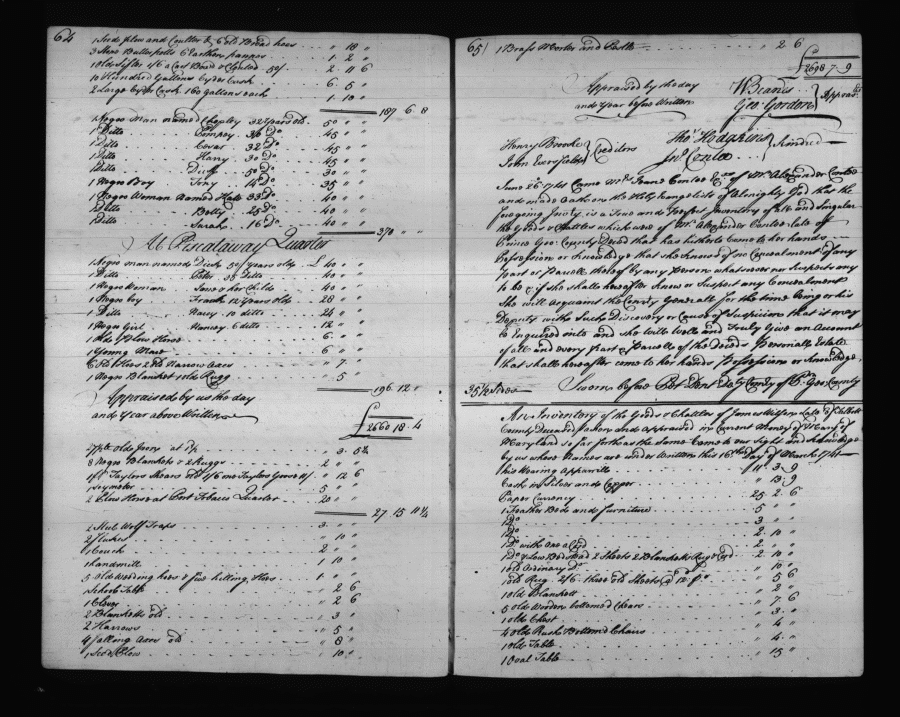 64
1 Seed plow and Coulter & 6 old Broad hoes " 18 "
3 Stone Butterpotts 6 Earthen panns 1 2 "
1 old Sifter 1/6 a Cart Bed & 2 11 6
10 Hundred Gallons Cyder Cask 6 5 "
2 Large Cyder Cask 160 gallons each 1 10 "
187 6 8
1 Negro Man named 32 Years old 50 " "
1 Ditto Pompey 36 Do 45 " "
1 Ditto Cesar 32 Do 45 " "
1 Ditto Harry 30 Do 45 " "
1 Ditto Dick 50 Do 30 " "
1 Negro Boy Tony 14 Do 35 " "
1 Negro Woman Named Kate 33 Do 40 " "
1 Ditto Betty 25 Do 40 " "
1 Ditto Sarah 16 Do 40 " "
370 " "
At Piscataway Quarter
1 Negro man named Dick 50 years old £ 40 " "
1 Ditto Peter 35 Ditto 40 " "
1 Negro Woman Jane & her Child 40 " "
1 Negro boy Frank 12 years old 28 " "
1 Ditto Harry 10 ditto 24 " "
1 Negro Girl Nancey 6 ditto 12 " "
1 old Plow Horse 6 " "
1 Young Mare 6 " "
6 old Hoes 2 old Narrow Axes " 7 "
1 Negro Blanket 1 old Rugg " 5 "
196 12 "
Appraised by us the day
and Year above Written
£2660 18 4
old Iron at " 3 5½
8 Negro Blanketts & 2 Ruggs 2 0 "
1 pr Taylors Shears old 1/6 one Taylors Goose " 12 6
1 Seymeter " 5 "
2 Plow Horses at Port Tobacco Quarter 20 " "
27 15 11¼
2 Steel Wolf Traps 3 " "
2 Flukes " 10 "
1 Couch 2 " "
1 handmill 1 10 "
5 old Weeding hoes & five hilling Hoes 1 " "
1 School Table " 2 6
1 Cleaver " 2 6
2 Blanketts old " 3 "
2 Harrows " 5 "
4 falling Axes old " 8 "
1 Seed Plow " 10 "
65
1 Brass Morter and Pestle " 2 6
£2698 7 9
Appraised by the day
and Year before Written
W Beanes
Geo: Gordon } Apprars
Henry Brooke
John Eversfield } Creditors
Thos Hodgkins
Jno Contee } Kindred
June 26 1741 Came Mrs Jane Contee Exx of Mr Alexander Contee
and made Oath on the Holy Evangelists of Almighty God that the
foregoing Invty is a True and Perfect Inventory of all and Singular
the Goods & Chattles which were of Mr Alexander Contee late of
Prince Geo: County Deced that has hitherto came to her hands
Possession or Knowledge that she Knows of no Concealment of any
part or Parcell thereof by any Person whatsoever nor Suspects any
to be & if she shall hereafter Know or Suspect any Concealment
She will acquaint the Comsry Generall for the time being or his
Deputy with Such Discovery or Cause of Suspicion that it may
be Enquired into and She will Well and Truly Give an Account
of all and every part & Parcell of the Deceds Personall Estate
that shall hereafter come to her hands Possession or Knowledge
35½ Sides
Sworn before Pet: Dent Dty Comsry of P: Geo: County
An Inventory of the Goods & Chattles of James Late of Talbott
County Deceased taken and Appraised in Current Money of
Maryland so far forth as the Same Came to our Sight and Knowledge
by us whose Names are under Written this 16th Day of March 1741
his Wearing Apparrile 11 3 9
Cash in Silver and Copper " 13 9
Paper Currency 25 2 6
1 Feather Bed and furniture 5 " "
1 Do 3 " "
1 Do 2 10 "
1 Do with one 2 " "
1 Do & Low Bedstead 2 Sheets 2 Blanketts Rugg & Cord 2 10 "
1 old Ordinary Do " 10 "
1 old Rug 2/6 three old Sheets " 5 6
1 old Blankett " 2 "
5 old Wooden bottomed Chears " 7 6
1 old Chest " 3 "
4 old Rush Bottomd Chairs " 4 "
1 old Table " 4 "
1 Oval Table " 15 "